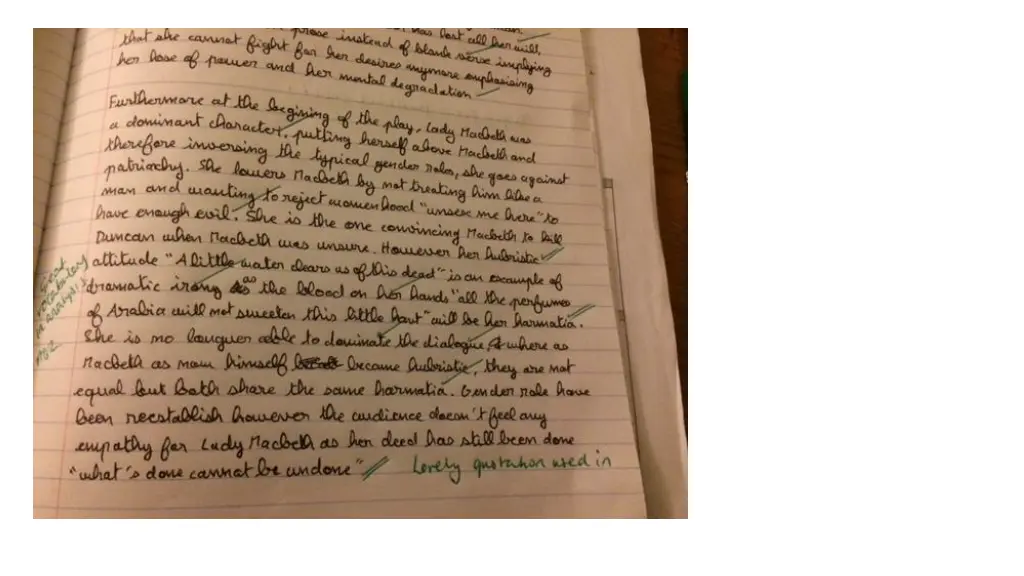 was lost all her will
prose instead of blank verse implying
that she cannot fight for her desires anymore emphasising
her lose of power and her mental degradation
Furthermore at the begining of the play, Lady Macbeth was
a dominant character, putting herself above Macbeth and
therefore inversing the typical gender roles, she goes against
patriarchy. She lowers Macbeth by not treating him like a
man and wanting to reject womenhood "unsex me here" to
have enough evil. She is the one convincing Macbeth to kill
Duncan when Macbeth was unsure. However her hubristic
attitude "A little water clears us of this dead" is an example of
dramatic irony as the blood on her hands "all the perfumes
of Arabia will not sweeten this little hant" will be her harmatia.
She is no longuer able to dominate the dialogue, where as
Macbeth as now himself became hubristic, they are not
equal but both share the same harmatia. Gender role have
been reestablish however the audience doesn't feel any
empathy for Lady Macbeth as her deed has still been done
"what's done cannot be undone" Lovely quotation used in
Great
vocabulary
in analysis
AO2